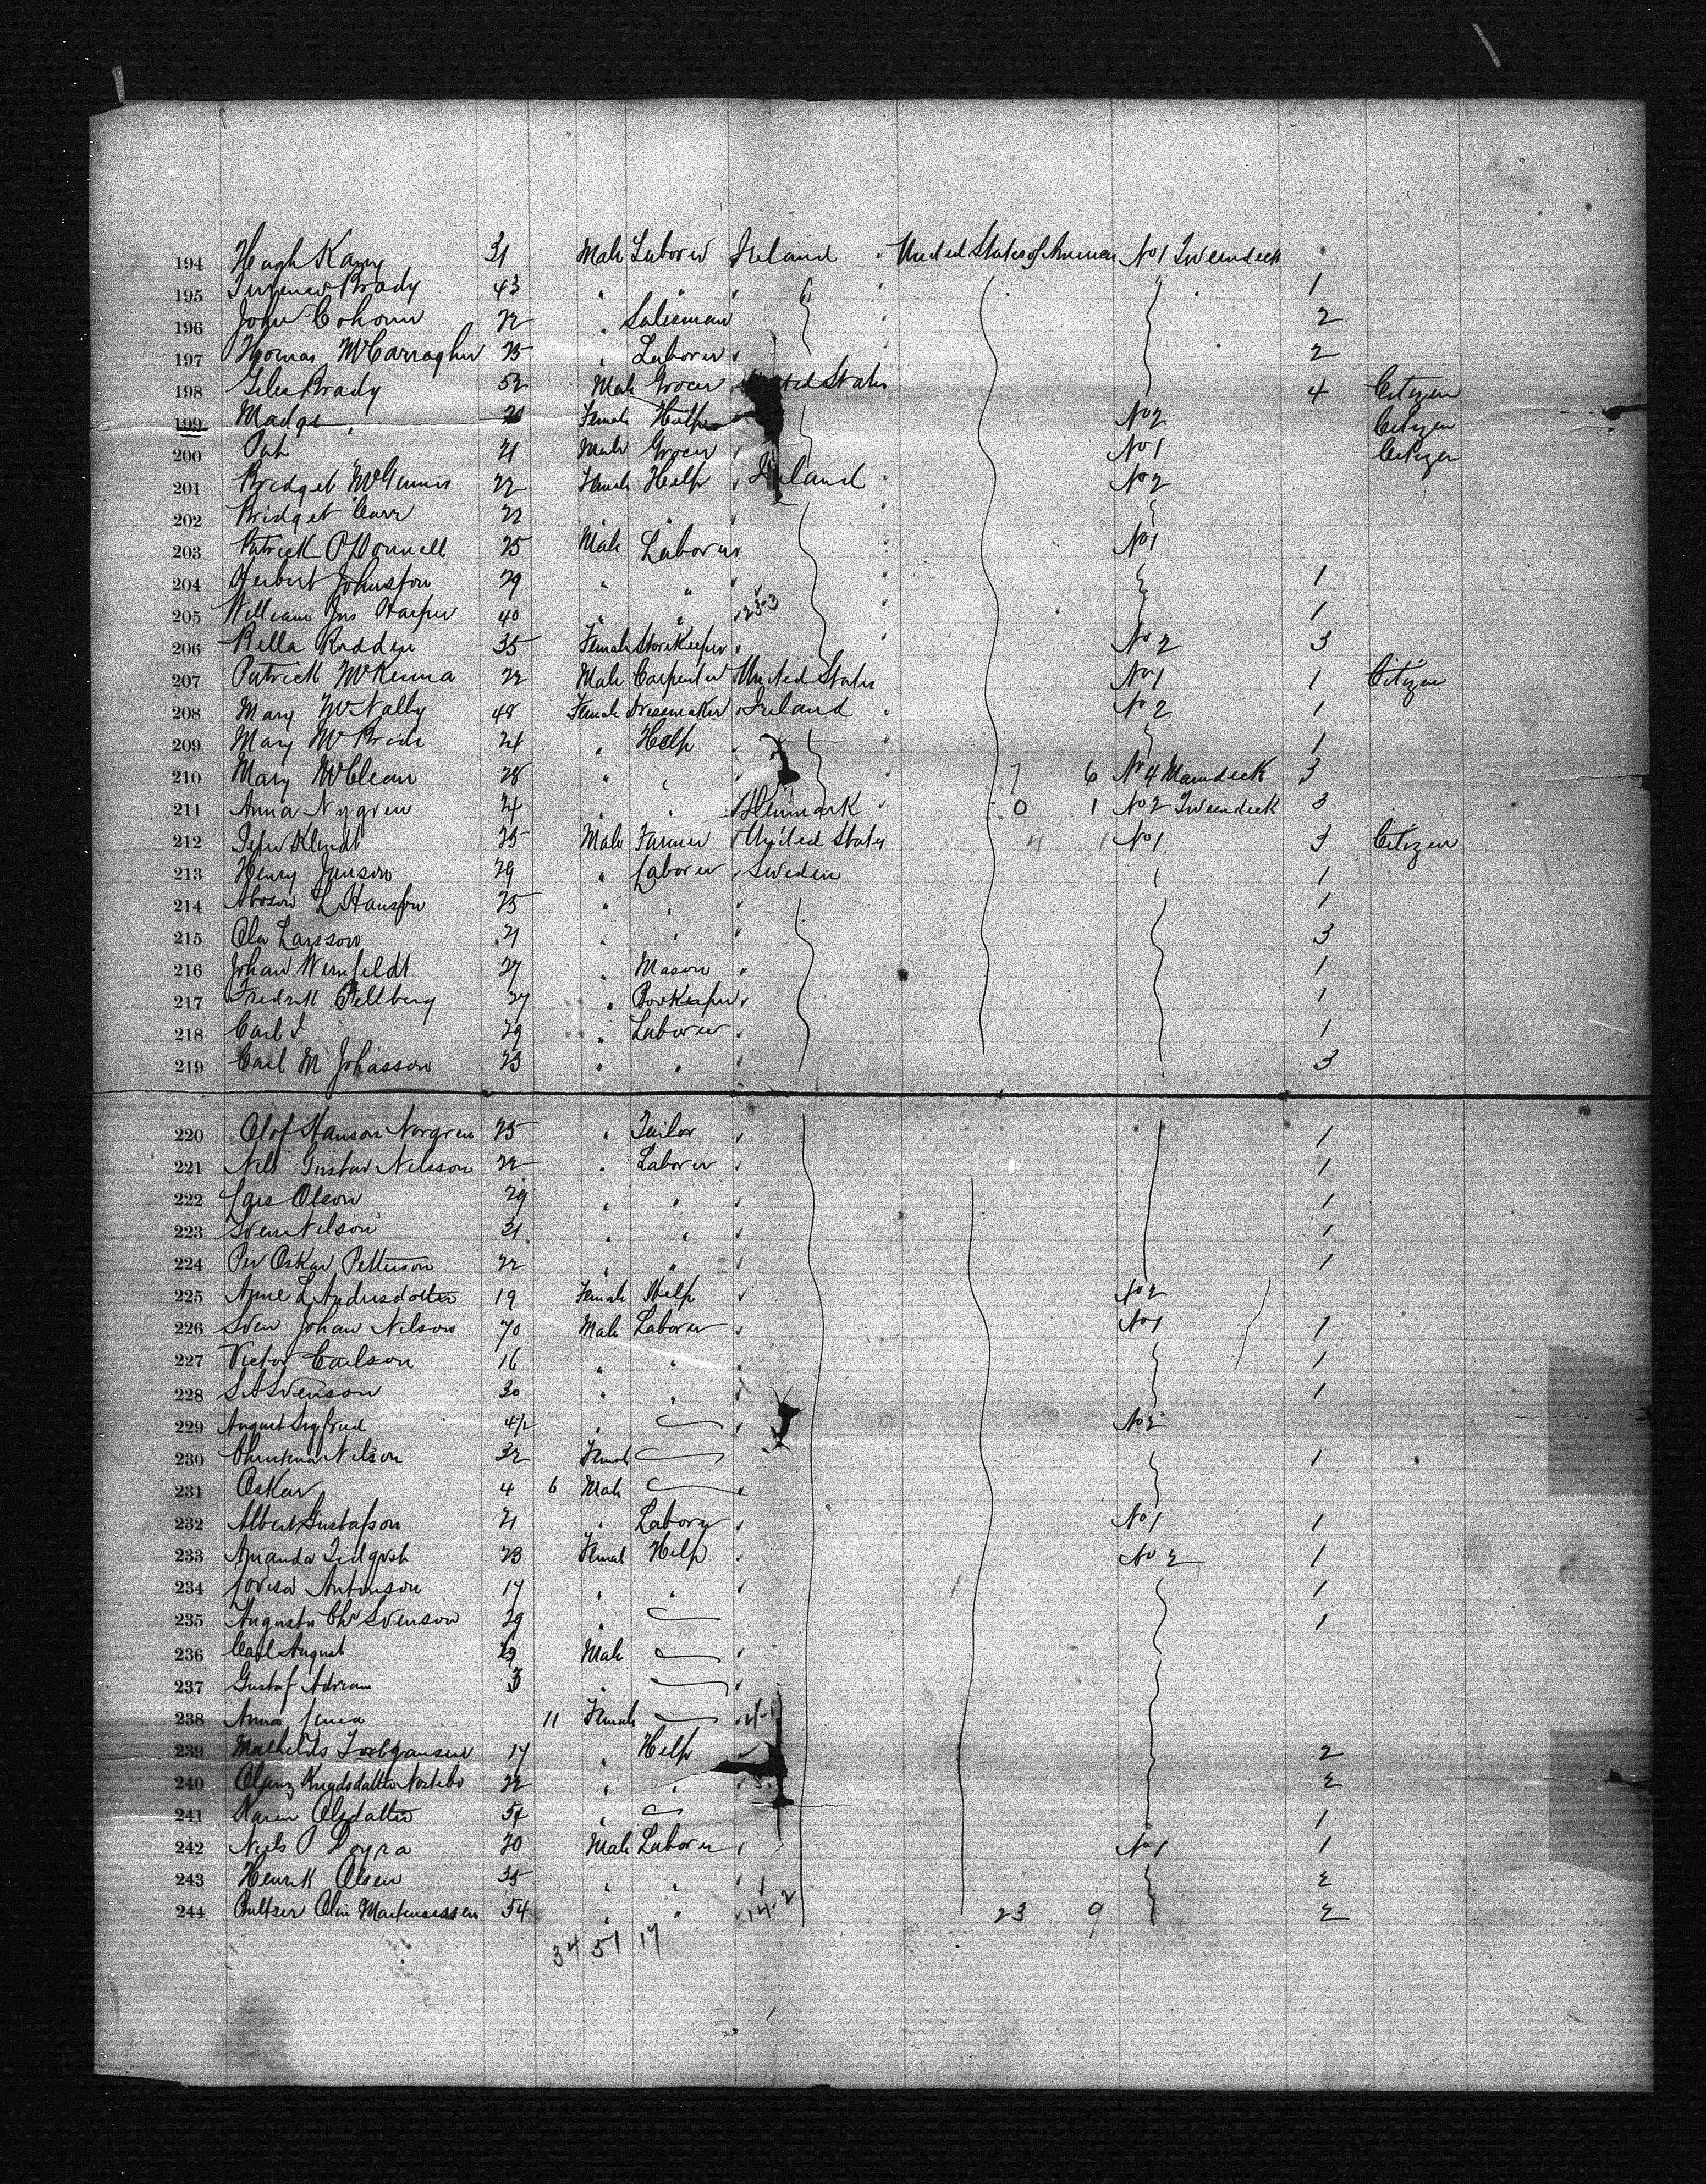 194 Hugh 31 Male Laborer Ireland United States of America No 1 Tweendeck
195 Brady 43 " " " 1
196 John Cohonn 22 " Salesman 2
197 Thomas McCarragher 25 " Laborer 2
198 Brady 52 Male Grocer United States 4 Citizen
199 Madge " Female Help No 2 Citizen
200 Pat 21 Male Grocer No 1 Citizen
201 Bridget McGinnis 22 Female Help Ireland No 2
202 Bridget Carr 22 " "
203 Patrick O'Donnell 25 Male Laborer No 1
204 Herbert Johnston 29 " " 1
205 William Jas Harper 40 " " 23-3 1
206 Bella Rodden 35 Female Storekeeper No 2 3
207 Patrick McKenna 22 Male Carpenter United States No 1 1 Citizen
208 Mary McNally 48 Female Dressmaker Ireland No 2 1
209 Mary McBride 24 " Help 1
210 Mary McClean 28 " " 7 6 No 4 Maindeck 3
211 Anna Nygren 24 " " Denmark 0 1 No 2 Tweendeck 3
212 25 Male Farmer United States 4 1 No 1 3 Citizen
213 Henry Janson 29 " Laborer Sweden 1
214 L Hanson 25 " " 1
215 Ola Larsson 21 " " 3
216 Johan Wernfeldt 27 " Mason 1
217 Fredrik 27 " Bookeeper 1
218 Carl J 29 " Laborer 1
219 Carl M Johasson 23 " " 3
220 Olof Hanson Norgren 25 " Tailor 1
221 Nels Gustav Nelsson 22 " Laborer 1
222 Lars Olson 29 " " 1
223 Sven Nelson 31 " " 1
224 Per Oskar Petterson 22 " " 1
225 L Andersdotter 19 Female Help No 2
226 Sven Johan Nelson 20 Male Laborer No 1 1
227 Victor Carlson 16 " " 1
228 S A Svenson 30 " " 1
229 August Sigfried 4½ " No 2
230 Christina Nelson 32 Female 1
231 Oskar 4 6 Male
232 Albert Gustafson 21 " Laborer No 1 1
233 Amanda 23 Female Help No 2 1
234 Lovisa Antonson 17 " " 1
235 Augusta Chr Svenson 29 " 1
236 Carl August Male
237 Gustaf Adrian 3 "
238 Anna 11 Female 4-1
239 17 " Help 2
240 22 " " 2
241 Karen Olsdatter 51 " 1
242 Niels P 20 Male Laborer No 1 1
243 Henrik Olsen 35 " " 2
244 54 " " 14-2 23 9 2
34 51 17